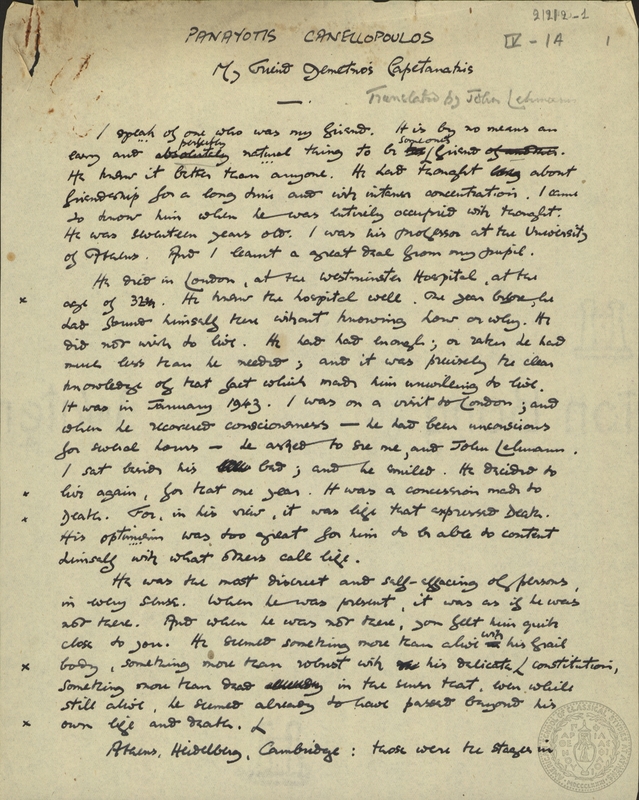 2/2/2-1
PANAYOTIS CANELLOPOULOS
IV - 1A 1
My Friend Demetrios Capetanakis
Translated by John Lehmann
I speak of one who was my friend. It is by no means an
easy and absolutely perfectly natural thing to be someone's friend of another.
He knew it better than anyone. He had thought long about
friendship for a long time and with intense concentration. I came
to know him when he was entirely occupied with thought.
He was seventeen years old. I was his professor at the University
of Athens. And I learnt a great deal from my pupil.
He died in London, at the Westminster Hospital, at the
x age of 32. He knew the hospital well. One year before, he
had found himself there without knowing how or why. He
did not wish to live. He had had enough; or rather he had
much less than he needed; and it was precisely the clear
knowledge of that fact which made him unwilling to live.
It was in January 1943. I was on a visit to London; and
when he recovered consciousness — he had been unconscious
for several hours — he asked to see me, and John Lehmann.
I sat beside his bed; and he smiled. He decided to
x live again, for that one year. It was a concession made to
x Death. For, in his view, it was life that expressed Death.
His optimism was too great for him to be able to content
himself with what others call life.
He was the most discreet and self-effacing of persons,
in every sense. When he was present, it was as if he was
not there. And when he was not there, you felt him quite
close to you. He seemed something more than alive with his frail
x body, something more than robust with his delicate constitution,
something more than dead in the sense that, even while
still alive, he seemed already to have passed beyond his
x own life and death.
Athens, Heidelberg, Cambridge: those were the stages in